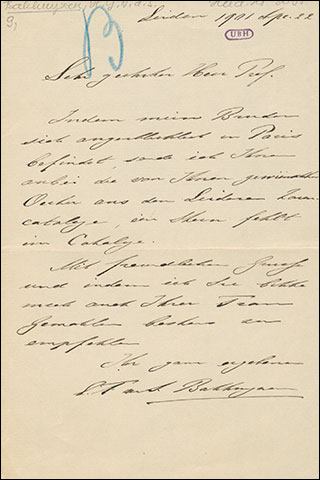 Bakhuyzen,
Leiden 1901 Apr. 22
UBH
Sehr geehrter Herr Prof.
Indem mein Bruder
sich augenblicklich in Paris
befindet, sende ich Ihnen
anbei die von Ihnen gewünschten
Oerter aus den Leidener Zonen-
cataloge, ein Stern fehlt
im Cataloge.
Mit freundlichen Grusse
und indem ich Sie bitte
mich auch Ihrer Frau
Gemahlin bestens zu
empfehlen
Ihr ganz ergebener
Bakhuyzen